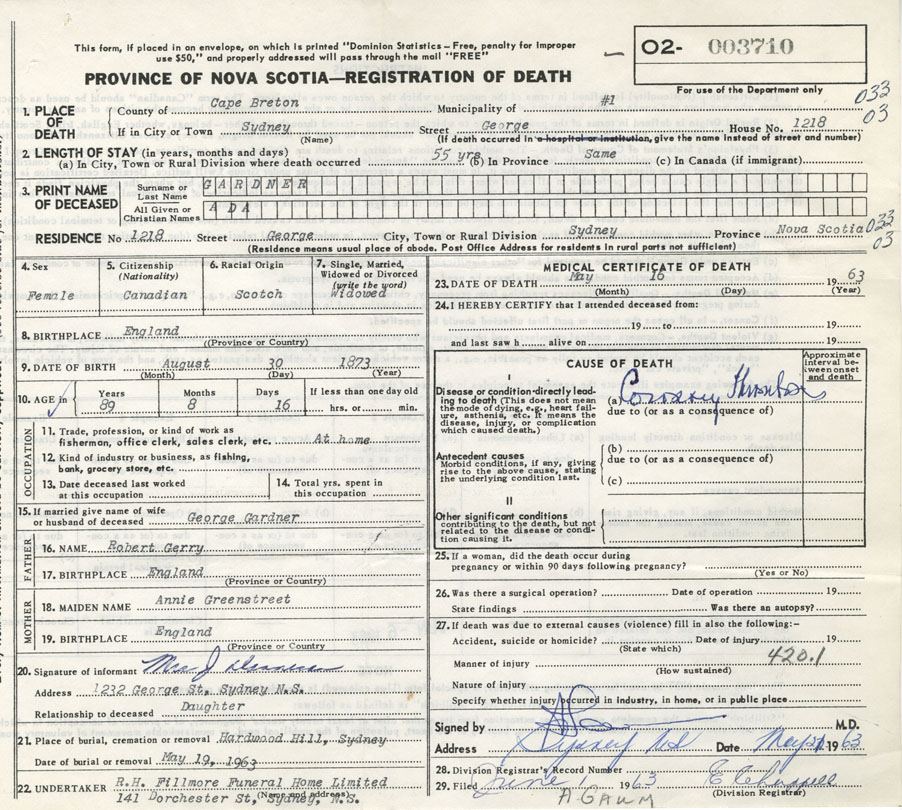 This form, if placed in an envelope, on which is printed "Dominion Statistics – Free, penalty for improper
use $50," and properly addressed will pass through the mail "FREE"
PROVINCE OF NOVA SCOTIA—REGISTRATION OF DEATH
O2- 003710
For use of the Department only
033
03
1. PLACE OF DEATH
County of Cape Breton Municipality of #1
If in City or Town Sydney Street George House No. 1218
(Name) (If death occurred in a hospital or institution, give the name instead of street and number)
2. LENGTH OF STAY (in years, months and days)
(a) In City, Town or Rural Division where death occurred 55 yrs (b) In Province Same (c) In Canada (if immigrant)
3. PRINT NAME OF DECEASED
Surname or Last Name GARDNER
All Given or Christian Names ADA
RESIDENCE No 1218 Street George City, Town or Rural Division Sydney Province Nova Scotia 033
03
(Residence means usual place of abode. Post Office Address for residents in rural parts not sufficient)
4. Sex 5. Citizenship (Nationality) 6. Racial Origin 7. Single, Married, Widowed or Divorced (write the word)
Female Canadian Scotch Widowed
8. BIRTHPLACE England
(Province or Country)
9. DATE OF BIRTH August 30 1873
(Month) (Day) (Year)
10. AGE in Years Months Days If less than one day old
89 8 16 hrs. or min.
OCCUPATION
11. Trade, profession, or kind of work as
fisherman, office clerk, sales clerk, etc. At home
12. Kind of industry or business, as fishing,
bank, grocery store, etc.
13. Date deceased last worked
at this occupation
14. Total yrs. spent in
this occupation
15. If married give name of wife
or husband of deceased George Gardner
FATHER
16. NAME Robert Gerry
17. BIRTHPLACE England
(Province or Country)
MOTHER
18. MAIDEN NAME Annie Greenstreet
19. BIRTHPLACE England
(Province or Country)
20. Signature of informant Mrs J
Address 1232 George St, Sydney N.S.
Relationship to deceased Daughter
21. Place of burial, cremation or removal Hardwood Hill, Sydney
Date of burial or removal May 19, 1963
22. UNDERTAKER R.H. Fillmore Funeral Home Limited
141 Dorchester St, Sydney, N.S.
(Name and address)
MEDICAL CERTIFICATE OF DEATH
23. DATE OF DEATH May 16 1963
(Month) (Day) (Year)
24. I HEREBY CERTIFY that I attended deceased from:
19 to 19
and last saw h alive on 19
CAUSE OF DEATH
Approximate interval between onset and death
I
Disease or condition directly leading to death (This does not mean
the mode of dying, e.g., heart failure, asthenia, etc. It means the
disease, injury, or complication
which caused death.)
(a) Coronary Thrombosis
due to (or as a consequence of)
Antecedent causes
Morbid conditions, if any, giving
rise to the above cause, stating
the underlying condition last.
(b)
due to (or as a consequence of)
(c)
II
Other significant conditions
contributing to the death, but not
related to the disease or condition causing it.
25. If a woman, did the death occur during
pregnancy or within 90 days following pregnancy?
(Yes or No)
26. Was there a surgical operation? Date of operation 19
State findings Was there an autopsy?
27. If death was due to external causes (violence) fill in also the following:–
Accident, suicide or homicide? Date of injury 19
(State which)
420.1
Manner of injury
(How sustained)
Nature of injury
Specify whether injury occurred in industry, in home, or in public place
Signed by M.D.
Address Sydney NS Date May 1963
28. Division Registrar's Record Number
29. Filed June 1963
(Division Registrar)
A GAUM